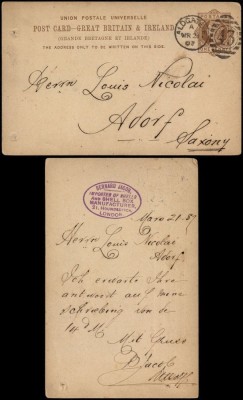 UNION POSTALE UNIVERSELLE
POST CARD-GREAT BRITAIN & IRELAND
(GRANDE BRETAGNE ET IRLANDE)
THE ADDRESS ONLY TO BE WRITTEN ON THIS SIDE.
Herrn Louis Nicolai
Adorf
Saxony
BERNARD JACOB
IMPORTER OF SHELLS
AND SHELL BOX
MANUFACTURER,
LONDON.
Herrn Louis Nicolai
Adorf.
Ich erwarte Ihre
antwort auf meine
schreibung von de
14 d M
Mit Gruss
B Jacob